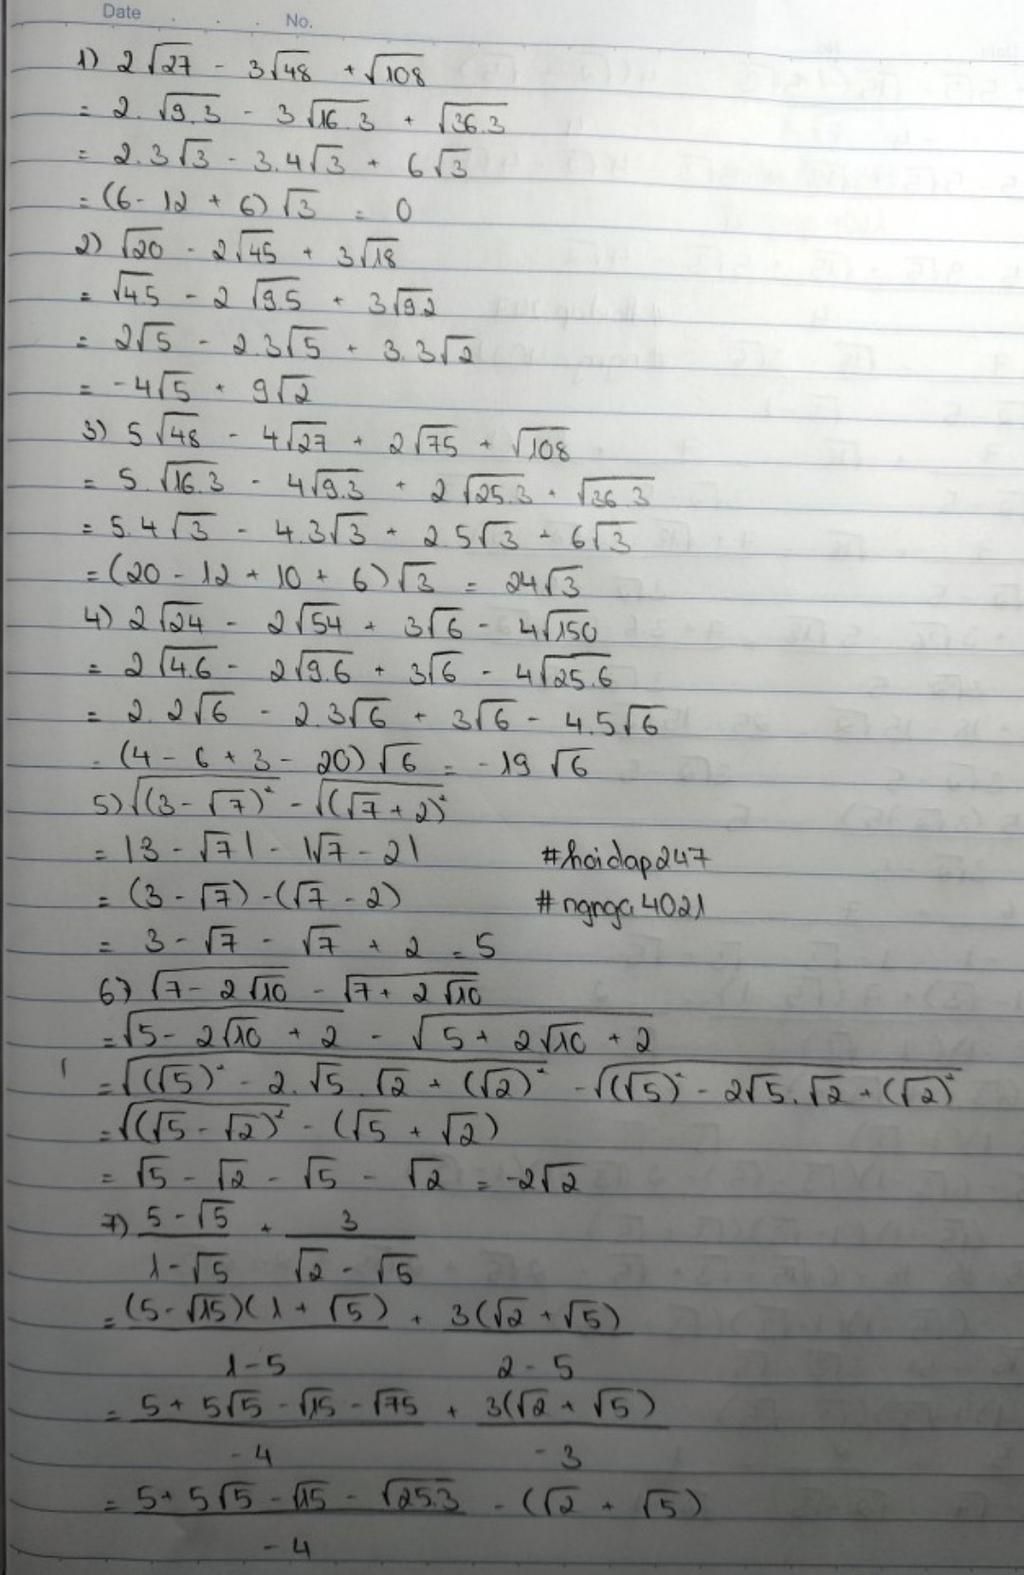 Date . . . No.
1) 2√27 - 3√48 + √108
= 2.√9.3 - 3√16.3 + √36.3
= 2.3√3 - 3.4√3 + 6√3
= (6 - 12 + 6)√3 = 0
2) √20 - 2√45 + 3√18
= √4.5 - 2√9.5 + 3√9.2
= 2√5 - 2.3√5 + 3.3√2
= -4√5 + 9√2
3) 5√48 - 4√27 + 2√75 + √108
= 5.√16.3 - 4√9.3 + 2√25.3 + √36.3
= 5.4√3 - 4.3√3 + 2.5√3 + 6√3
= (20 - 12 + 10 + 6)√3 = 24√3
4) 2√24 - 2√54 + 3√6 - 4√150
= 2√4.6 - 2√9.6 + 3√6 - 4√25.6
= 2.2√6 - 2.3√6 + 3√6 - 4.5√6
= (4 - 6 + 3 - 20)√6 = -19√6
5) √(3 - √7)² - √(√7 + 2)²
= |3 - √7| - |√7 - 2| #hoidap247
= (3 - √7) - (√7 - 2) #ngnga4021
= 3 - √7 - √7 + 2 = 5
6) √7 - 2√10 - √7 + 2√10
= √5 - 2√10 + 2 - √5 + 2√10 + 2
= √(√5)² - 2.√5.√2 + (√2)² - √(√5)² - 2√5.√2 + (√2)²
= √(√5 - √2)² - (√5 + √2)
= √5 - √2 - √5 - √2 = -2√2
7) 5 - √5 + 3
1 - √5 √2 - √5
= (5 - √15)(1 + √5) + 3(√2 + √5)
1 - 5 2 - 5
= 5 + 5√5 - √15 - √75 + 3(√2 + √5)
- 4 - 3
= 5 + 5√5 - √15 - √25.3 - (√2 + √5)
- 4